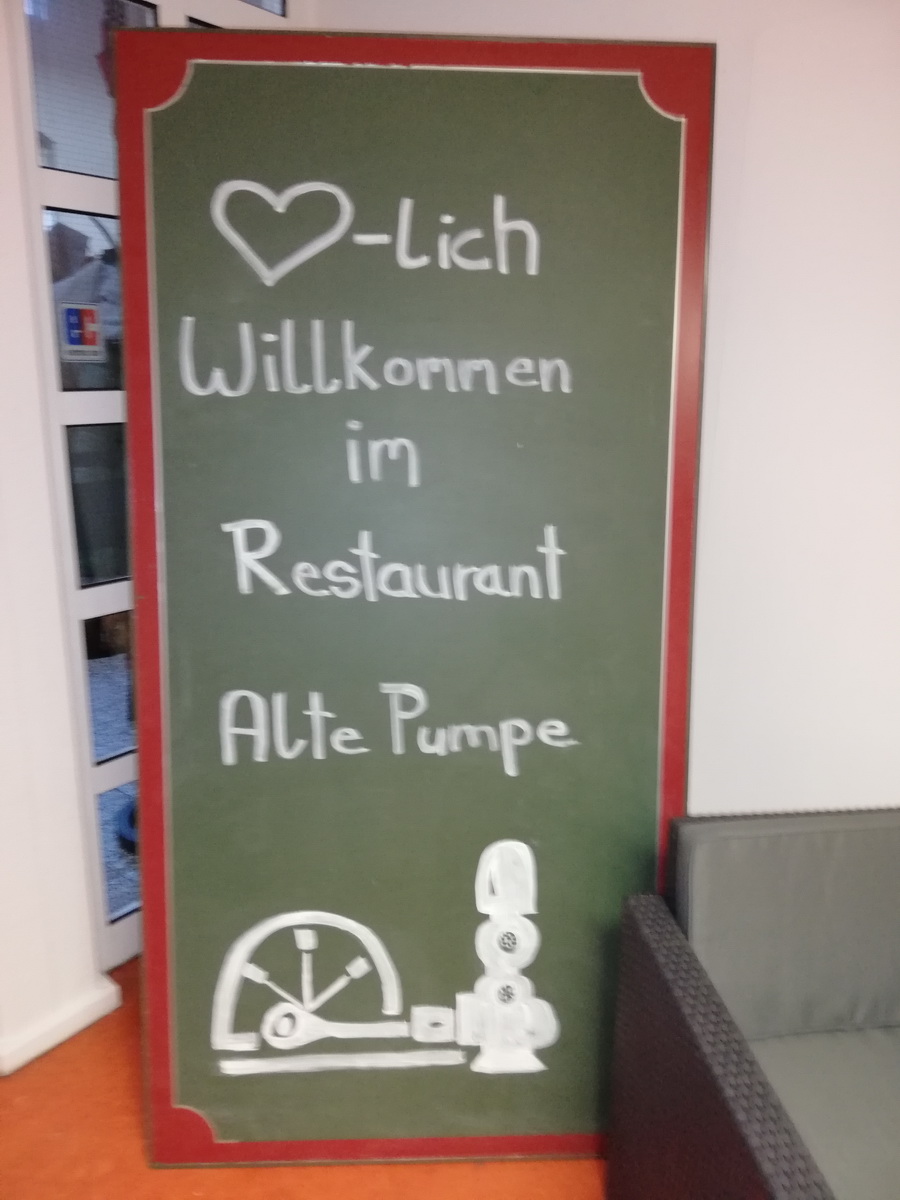 ♡-lich
Willkommen
im
Restaurant
Alte Pumpe